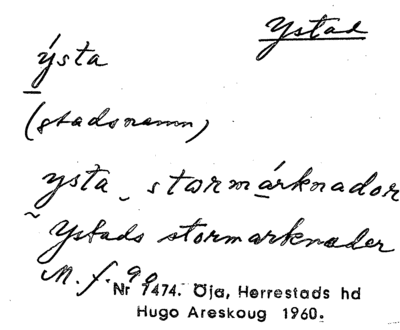 Ystad
ýsta
(stadsnamn)
ysta - stormárknador
~ Ystads stormarknader
M. f. 90
Nr 7474. Öja, Herrestads hd
Hugo Areskoug 1960.